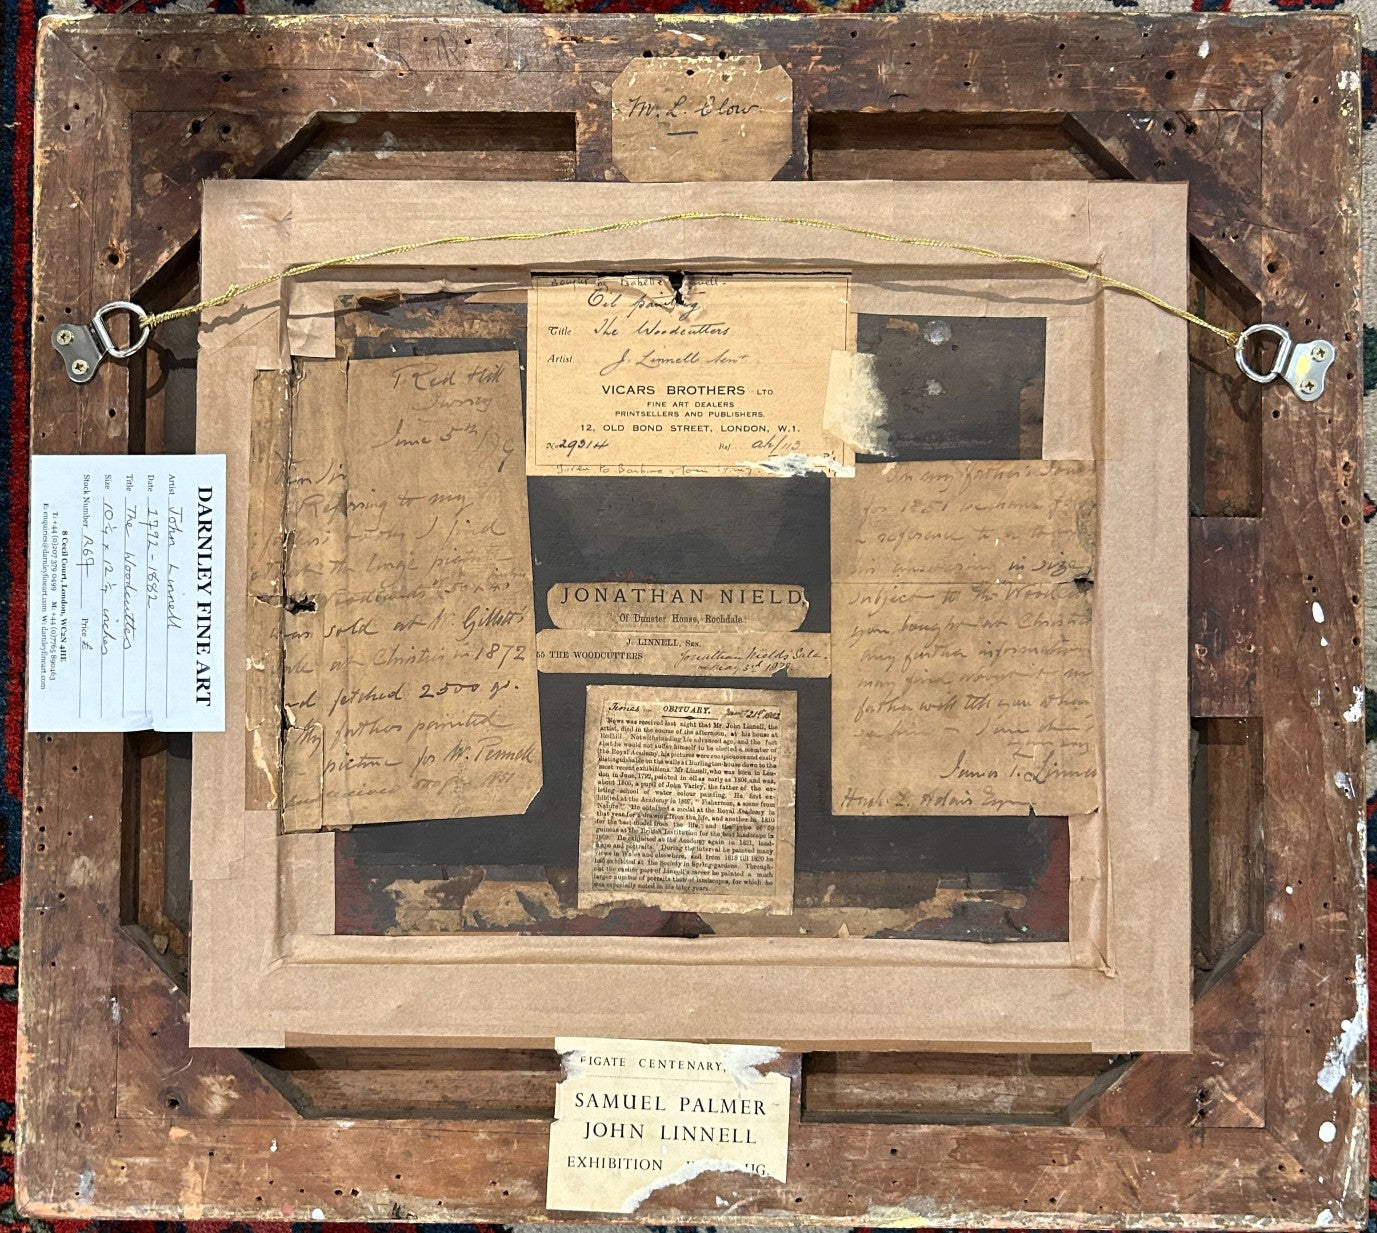 M. L. Clow.
Oil painting
Title The Woodcutters
Artist J. Linnell Senr
VICARS BROTHERS LTD
FINE ART DEALERS
PRINTSELLERS AND PUBLISHERS,
12, OLD BOND STREET, LONDON, W.1.
No 29214 Ref.
Given to Barbara & Tom
Red Hill
Surrey
June 5th/79
Sir
Referring to my
find
the large picture
was sold at Mr Gillott's
sale at Christie's in 1872
and fetched 2500 gs.
My father painted
picture for Mr. Pennell
1851
DARNLEY FINE ART
Artist John Linnell
Date 1792-1882
Title The Woodcutters
Size 10¼ x 12¼ inches
Stock Number R69 Price £
8 Cecil Court, London, WC2N 4HE
T: +44 (0)207 379 0499 M: +44 (0)7765 890463
E: enquiries@darnleyfineart.com W: darnleyfineart.com
JONATHAN NIELD,
Of Dunster House, Rochdale
J. LINNELL, SEN.
55 THE WOODCUTTERS Jonathan Nields Sale.
May 3rd 1879.
Times OBITUARY. Jany 21st 1882
News was received last night that Mr. John Linnell, the
artist, died in the course of the afternoon, at his house at
Redhill. Notwithstanding his advanced age, and the fact
that he would not suffer himself to be elected a member of
the Royal Academy, his pictures were conspicuous and easily
distinguishable on the walls of Burlington-house down to the
most recent exhibitions. Mr. Linnell, who was born in Lon-
don in June, 1792, painted in oil as early as 1804, and was,
about 1805, a pupil of John Varley, the father of the ex-
isting school of water colour painting. He first ex-
hibited at the Academy in 1807, "Fishermen, a scene from
Nature." He obtained a medal at the Royal Academy in
that year for a drawing from the life, and another in 1810
for the best model from the life, and the prize of 50
guineas at the British Institution for the best landscape in
1809. He exhibited at the Academy again in 1821, land-
scape and portraits. During the interval he painted many
views in Wales and elsewhere, and from 1818 till 1820 he
had exhibited at the Society in Spring-gardens. Through-
out the earlier part of Linnell's career he painted a much
larger number of portraits than of landscapes, for which he
was especially noted in his later years.
In my father's
for 1851
reference to a
in size
subject to the Woodcutters
you bought at Christie's
Any further information
may find about it
father will tell
James T. Linnell
Hugh E. Adair Esqre
EIGATE CENTENARY,
SAMUEL PALMER
JOHN LINNELL
EXHIBITION UG.